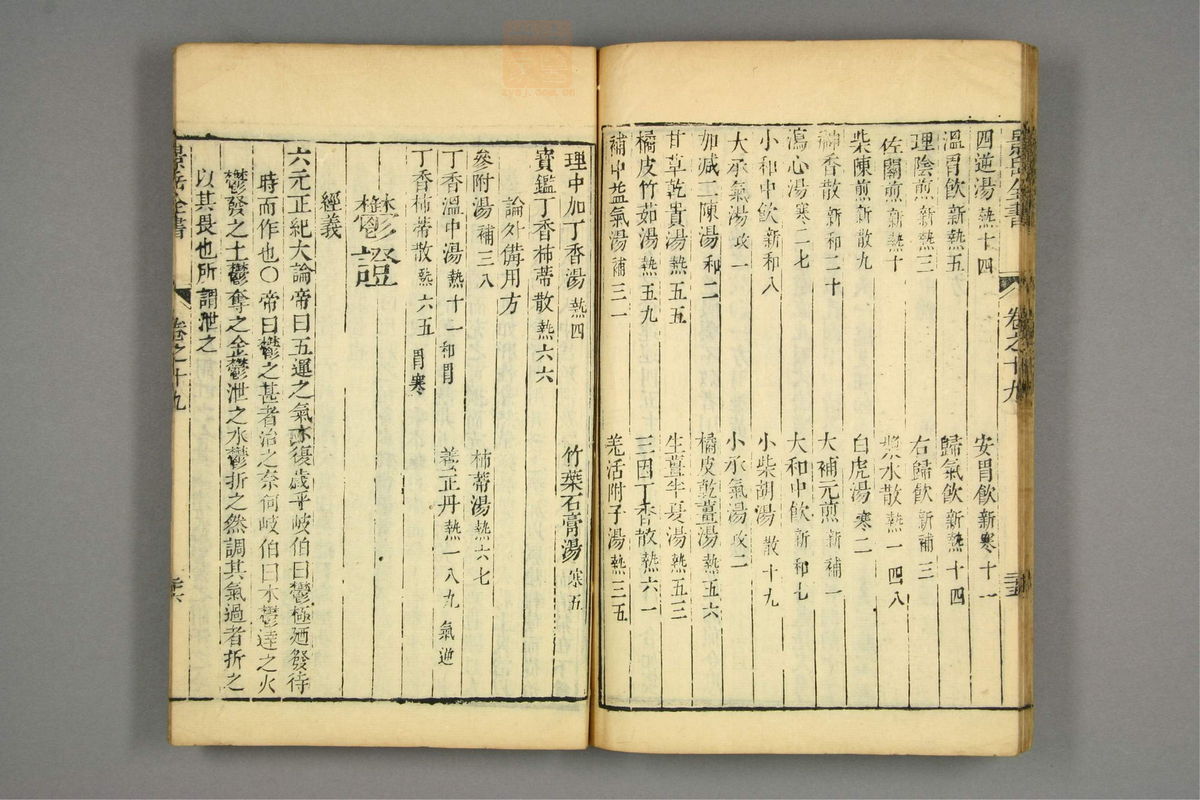 景岳全書 卷之十九 三五
四逆湯熱十四 安胃飲新寒十一
溫胃飲新熱五 歸氣飲新熱十四
理陰煎新熱三 右歸飲新補三
佐關煎新熱十 漿水散熱一四八
柴陳煎新散九 白虎湯寒二
神香散新和二十 大補元煎新補一
瀉心湯寒二七 大和中飲新和七
小和中飲新和八 小柴胡湯散十九
大承氣湯攻一 小承氣湯攻二
加减二陳湯和二 橘皮乾薑湯熱五六
甘草乾薑湯熱五五 生薑半夏湯熱五三
橘皮竹茹湯熱五九 三因丁香散熱六一
補中益氣湯補三一 羌活附子湯熱三五
理中加丁香湯熱四 竹葉石膏湯寒五
寶鑑丁香柿蒂散熱六六
論外備用方
參附湯補三八 柿蒂湯熱六七
丁香溫中湯熱十一和胃 養正丹熱一八九氣逆
丁香柿蒂散熱六五胃寒
鬱證
經義
六元正紀大論帝曰五運之氣亦復歲乎岐伯曰鬱極廼發待
時而作也○帝曰鬱之甚者治之奈何岐伯曰木鬱達之火
鬱發之土鬱奪之金鬱泄之水鬱折之然調其氣過者折之
以其畏也所謂泄之
景岳全書 卷之十九 三六